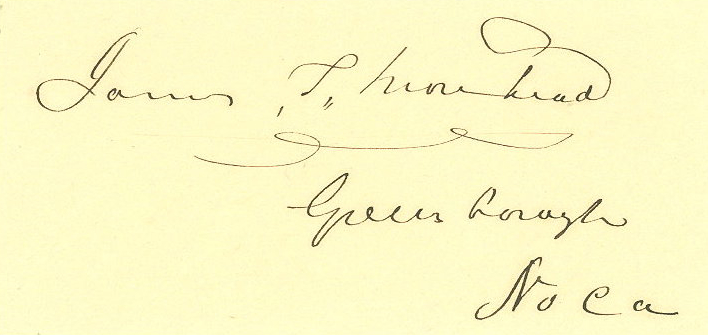 James T. Morehead
Greensborough
No Ca